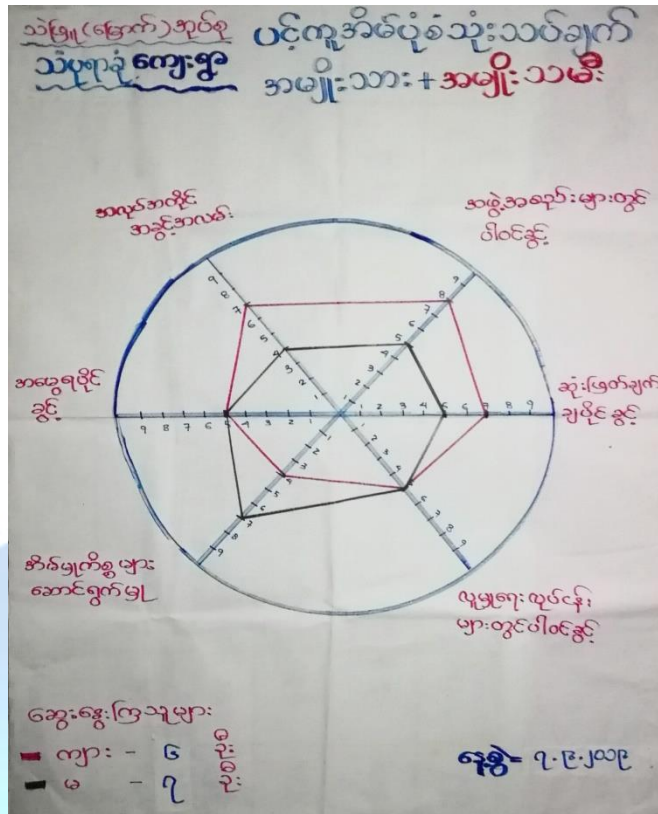 သဲဖြူ(မြောက်)အုပ်စု
သံပုရာခုံ ကျေးရွာ
ပင့်ကူအိမ်ပုံစံသုံးသပ်ချက်
အမျိုးသား+အမျိုးသမီး
အလုပ်အကိုင်
အခွင့်အလမ်း
အဖွဲ့အစည်းများတွင်
ပါဝင်ခွင့်
အမွေရပိုင်
ခွင့်
ဆုံးဖြတ်ချက်
ချပိုင်ခွင့်
အိမ်မှုကိစ္စများ
ဆောင်ရွက်မှု
လူမှုရေးလုပ်ငန်း
များတွင်ပါဝင်ခွင့်
ဆွေးနွေးကြသူများ
ကျား - ၆ ဦး
မ - ၇ ဦး
နေ့စွဲ = ၇.၉.၂၀၁၉